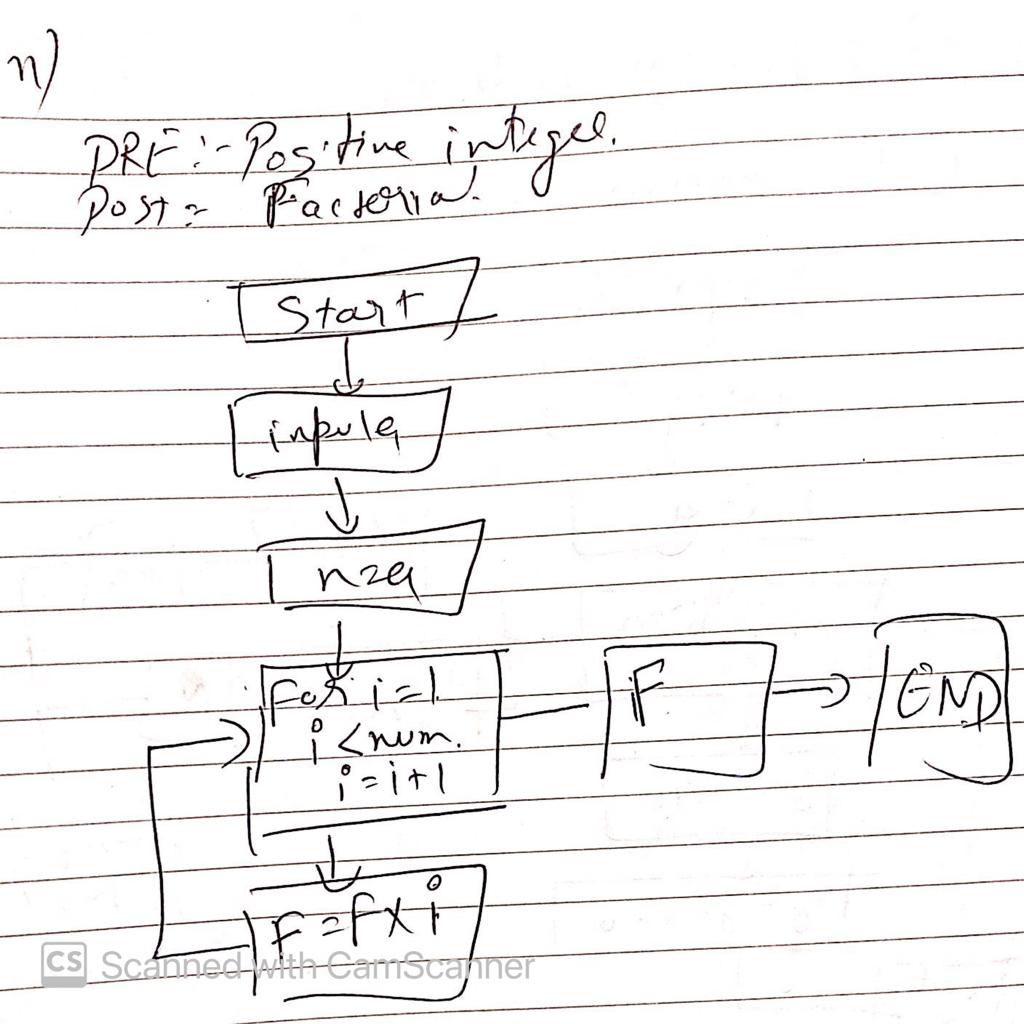 n)
PRE :- Positive integer.
Post = Factorial.
Start
input a
n=a
For i=1
i <num.
i=i+1
F
END
F=Fxi
CS Scanned with CamScanner